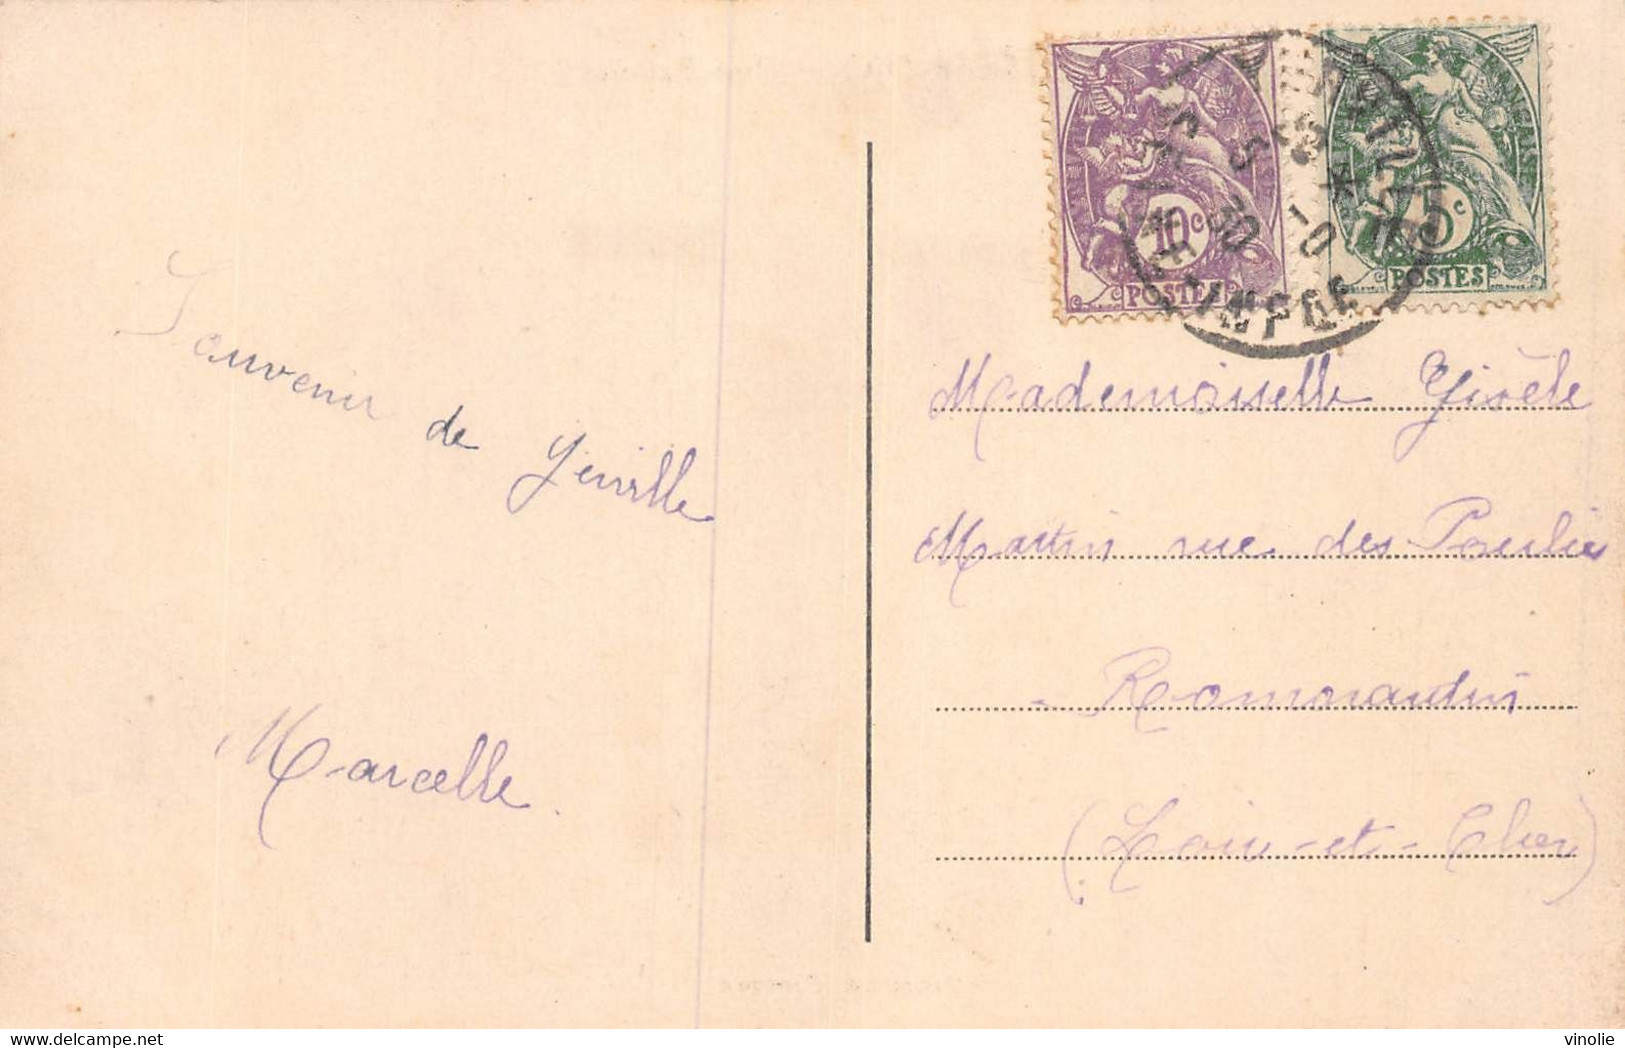 Souvenir
de Yenville
Marcelle.
10c
POSTES
5c
POSTES
Mademoiselle Gisèle
Martin rue des Poulies
Romorantin
(Loir-et-Cher)
https://www.delcampe.net
vinolie